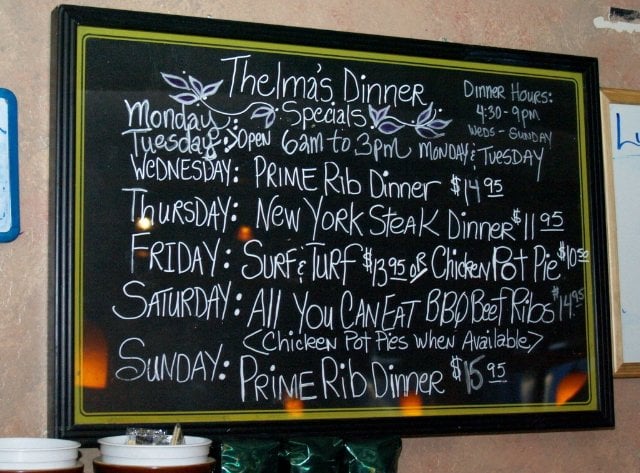 Thelma's Dinner
Specials
Dinner Hours:
4:30-9pm
Weds-Sunday
Monday
Tuesday: >Open 6am to 3pm Monday & Tuesday
Wednesday: Prime Rib Dinner $14.95
Thursday: New York Steak Dinner $11.95
Friday: Surf & Turf $13.95 or Chicken Pot Pie $10.50
Saturday: All You Can Eat BBQ Beef Ribs $14.95
<Chicken Pot Pies When Available>
Sunday: Prime Rib Dinner $15.95